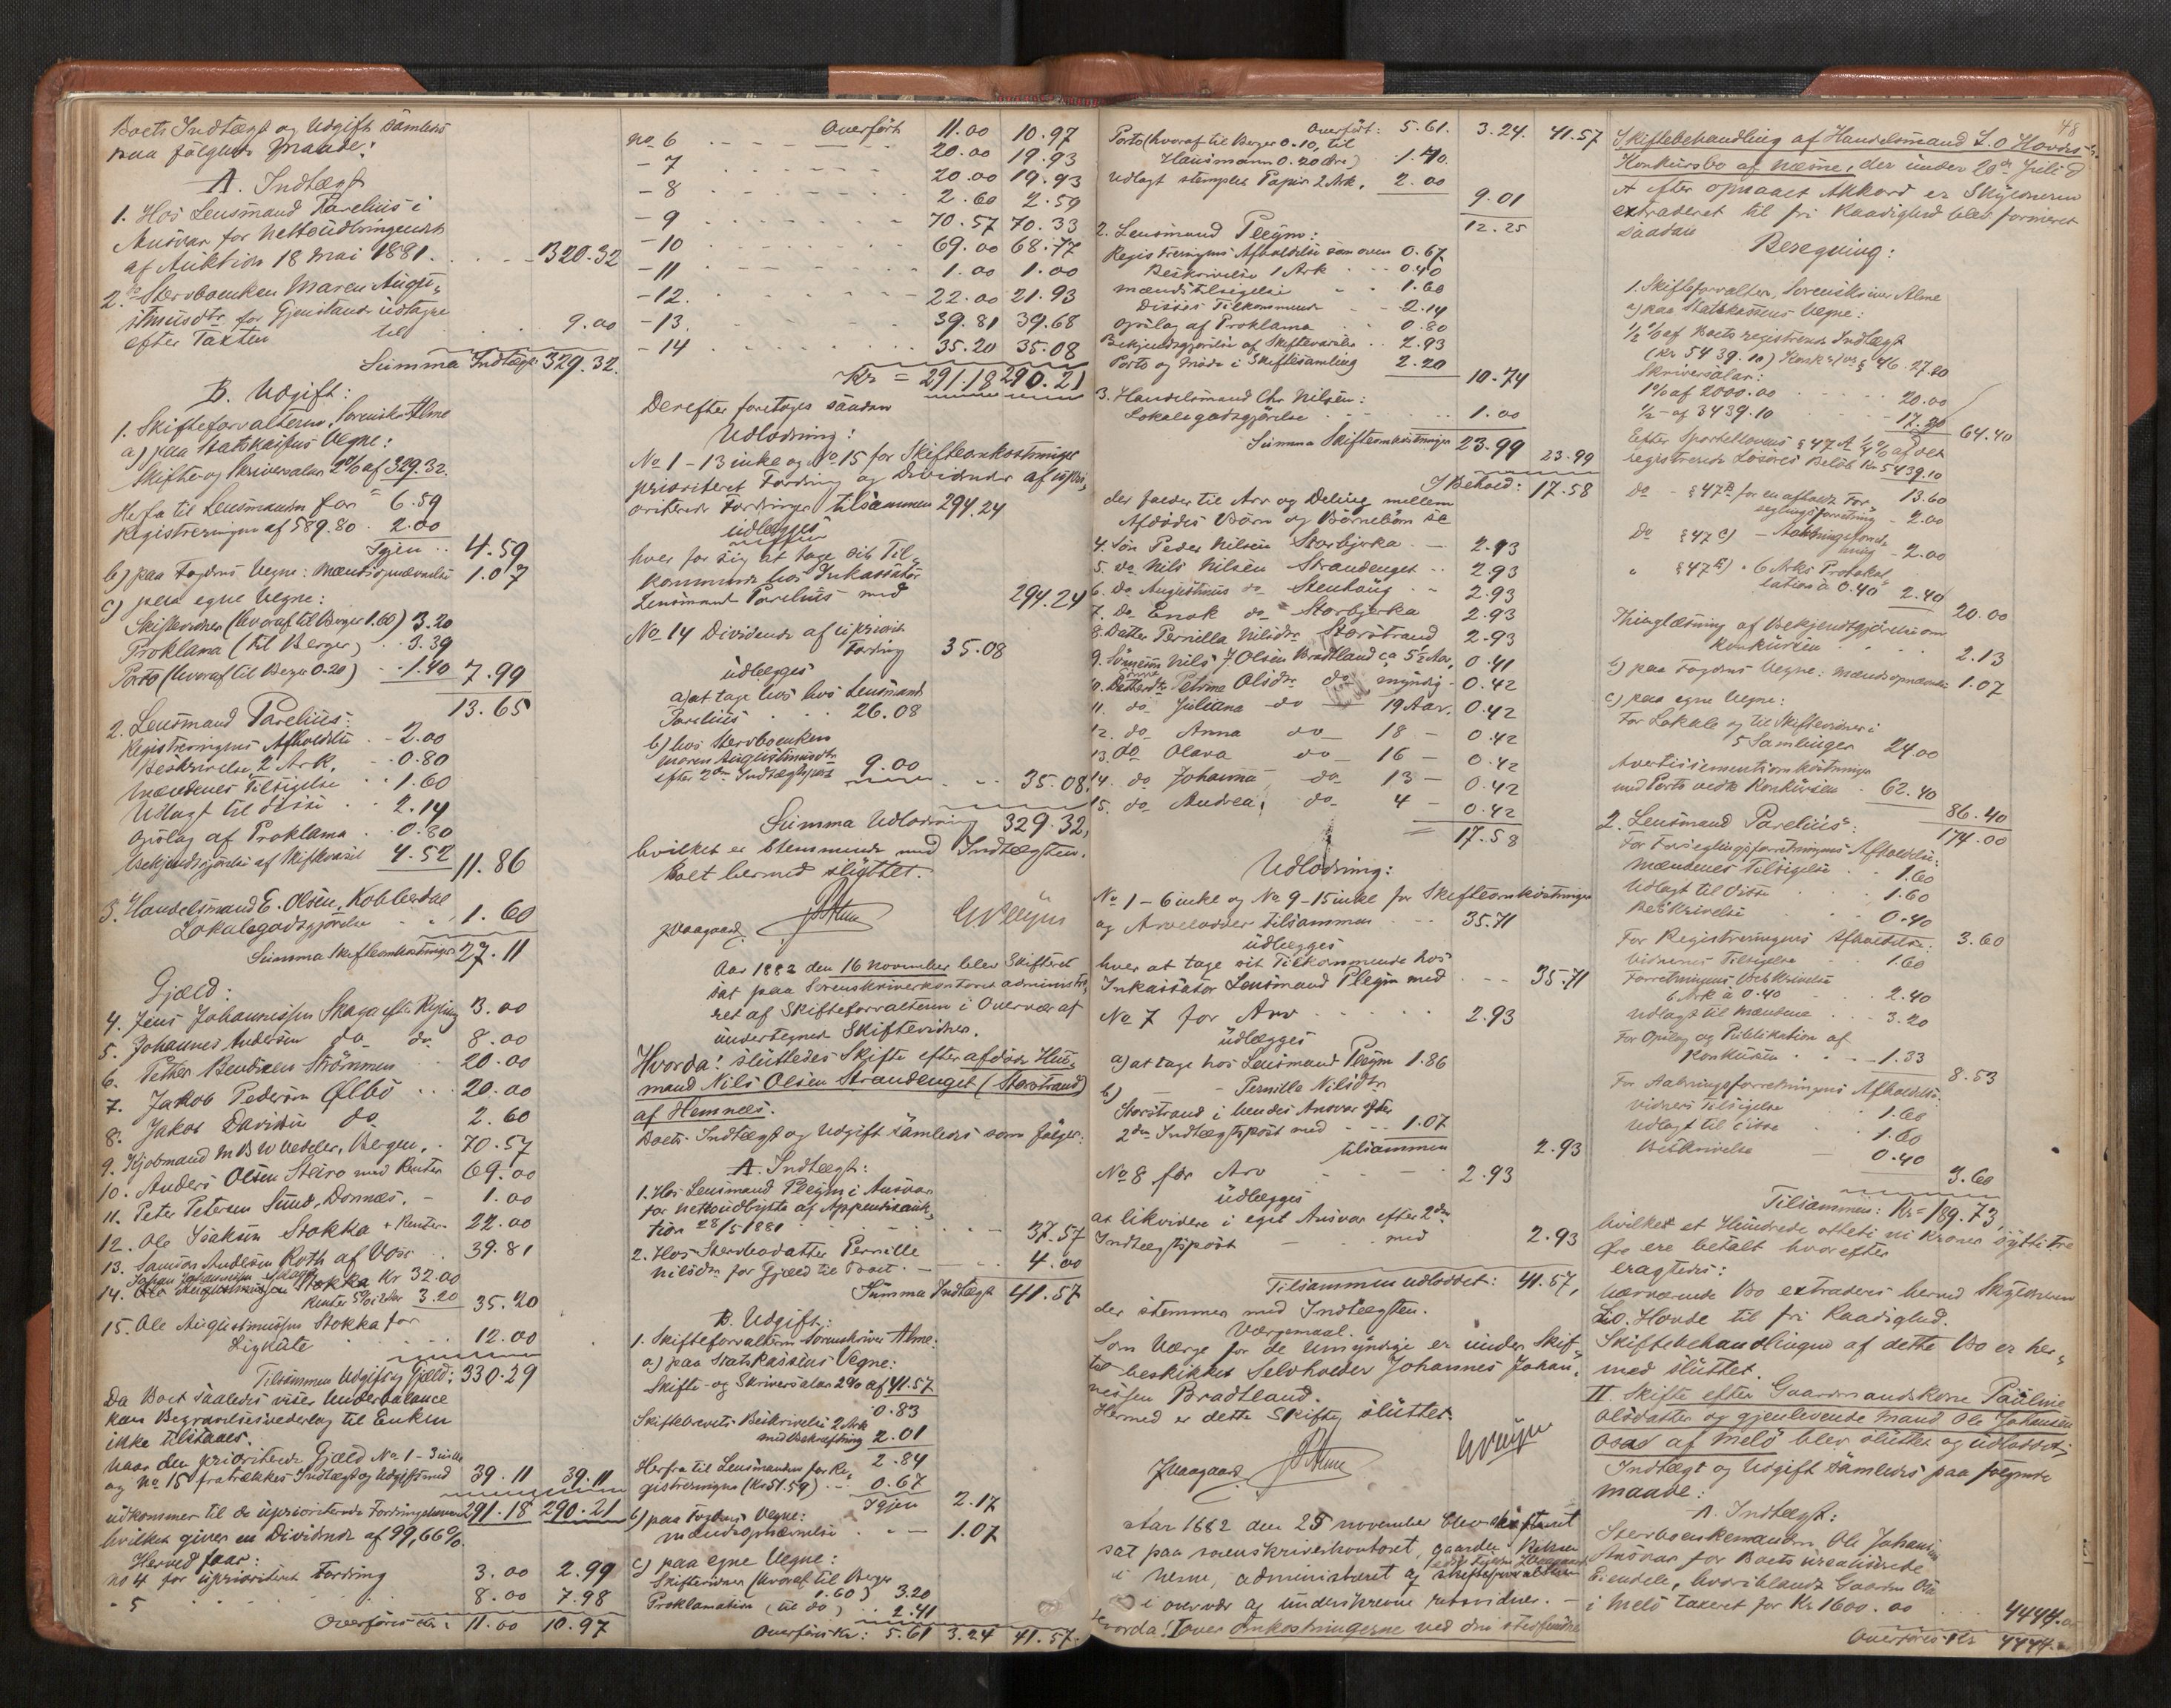 Boets Indtægt og Udgift samledes
paa følgende Maade:
A. Indtægt
1. Hos Lensmand Parelius i
Ansvar for Nettoudbringendet
af Auktion 18 Mai 1881. 320.32
2. Sterboenken Maren Augu-
stinusdtr for Gjenstande udtagne
efter Taxten til 9.00
Summa Indtægt 329.32.
B. Udgift:
1. Skifteforvalteren, Sorenskr. Alme
a) paa Statskassens Vegne:
Skifte og Skriversalær 2% af 329.32.
6.59
Herfra til Lensmanden for
Registreringen af 589.80 . 2.00
Igjen .. 4.59
b) paa Fogdens Vegne: Mændsopnævnelse 1.07
c) paa egne Vegne:
Skiftevidner (hvoraf til Berger 1.60) 3.20
Proklama (til Berger) . . 3.39
Porto (hvoraf til Berger 0.20) . 1.40 7.99
13.65
2. Lensmand Parelius:
Registreringens Afholdelse . 2.00
Beskrivelse 2 Ark. - 0.80
Mændenes Tilsigelse . . 1.60
Udlagt til disse . . 2.14
Opslag af Proklama . . 0.80
Bekjendtgjørelse af Skiftevarsel 4.52 11.86
3. Handelsmand E. Olsen, Kobberdal
Lokalegodtgjørelse . . 1.60
Summa Skifteomkostninger 27.11
Gjæld:
4. Jens Johannessen Skaga efter Regning 3.00
5. Johannes Andersen do do. 8.00
6. Petter Bendixen Strømmen 20.00
7. Jakob Pedersen Ølbø ... 20.00
8. Jakob Davidsen do 2.60
9. Kjøbmand M B W Wedder, Bergen, . 70.57
10. Anders Olsen Steiro med Renter 69.00
11. Peter Petersen Sund, Dønnes. - 1.00
12. Ole Isaksen Stokka + Renter 22.00
13. Samson Andersen Roth af Vossr .. 39.81
Johan Johannessen
14. Ole Augustinussen Stokka Kr 32.00
Renter 5% i 2 Aar 3.20 35.20
15. Ole Augustinussen Stokka for
Ligkiste . . . . 12.00
Tilsammen Udgift og Gjæld: 330.29
Da Boet saaledes viser Underbalance
kan Begravelsesvederlag til Enken
ikke tilstaaes.
Naar den prioriterede Gjæld No 1 - 3 inkl
og No 15 fratrækkes Indtægt og Udgift med 39.11 39.11
udkommer til de uprioriterede Fordringshavere 291.18 290.21
hvilket giver en Dividende af 99,66%.
Herved faar:
No 4 for uprioriteret Fordring 3.00 2.99
- 5 8.00 7.98
Overføres Kr: 11.00 10.97
Overført 11.00 10.97
No 6 20.00 19.93
- 7 20.00 19.93
- 8 2.60 2.59
- 9 70.57 70.33
- 10 69.00 68.77
- 11 1.00 1.00
- 12. 22.00 21.93
- 13. 39.81 39.68
- 14 35.20 35.08
Kr = 291.18 290.21
Derefter foretoges saadan
Udlodning:
No 1 - 13 inkl. og No 15 for Skifteomkostninger
prioriteret Fordring og Dividende af upri-
oriterede Fordringer tilsammen 294.24
udlægges
hver for sig at tage sit Til-
kommende hos Inkassator
Lensmand Parelius med 294.24
No 14 Dividende af uprioriteret
Fordring 35.08
udlægges
a) at tage hos hos Lensmand
Parelius . . . 26.08
b) hos Sterboenken
Maren Augustinusdtr
efter 2den Indtægtspost 9.00
35.08.
Summa Udlodning 329.32,
hvilket er stemmende med Indtægten.
Boet hermed sluttet.
JVaagaard. Alme G. Pleym
Aar 1882 den 16 november blev Skifteret
sat paa Sorenskriverkontoret administre-
ret af Skifteforvalteren i Overvær af
undertegnede Skiftevidner.
Hvorda! sluttedes Skifte efter afdøde Hus-
mand Nils Olsen Strandenget (Storstrand)
af Hemnæs.
Boets Indtægt og Udgift samledes som følger:
A. Indtægt:
1. Hos Lensmand Pleym i Ansvar
for Nettoudbytte af Appendixauk-
tion 28/5 1881 . 37.57
2. Hos Sterbodatter Pernille
Nilsdtr for Gjæld til Boet. 4.00
Summa Indtægt 41.57
B. Udgift:
1. Skifteforvalteren Sorenskriver Alme:
a) paa Statskassens Vegne:
Skifte- og Skriversalær 2% af 41.57
0.83
Skiftebrevets Beskrivelse 2 Ark
med Bekræftning 2.01
2.84
Herfra til Lensmanden for Re-
gistreringen (Kr 51.59) . . . 0.67
Igjen 2.17
b) paa Fogdens Vegne:
Mændsopnævnelse . . 1.07
c) paa egne Vegne:
Skiftevidner (hvoraf til Berger
1.60) 3.20
Proklamation (til do) . . 2.41
Overføres Kr: 5.61 3.24 41.57.
Overført: 5.61. 3.24. 41.57
Porto (hvoraf til Berger 0.10, til
Hansmann 0.20 Øre) 1.40
Udlagt stemplet Papir 2 Ark. 2.00
9.01
12.25
2. Lensmand Pleym:
Registreringens Afholdelse som oven 0.67
Beskrivelse 1 Ark . . 0.40
Mændstilsigelse . . 1.60
Disses Tilkommende . 2.14
Opslag af Proklama . 0.80
Bekjendtgjørelse af Skiftevarsel . . 2.93
Porto og Møde i Skiftesamling 2.20
10.74
3. Handelsmand Chr. Nilsen:
Lokalegodtgjørelse . . . . 1.00
Summa Skifteomkostninger 23.99 23.99
I Behold: 17.58
der falder til Arv og Deling mellem
Afdødes Børn og Børnebørn se
4. Søn Peder Nilsen Storbjerka . - 2.93
5. do Nils Nilsen Strandenget . . 2.93
6. do Augustinus do Stenhaug . . 2.93
7. do Enok do Storbjerka 2.93
8. Datter Pernilla Nilsdtr Storstrand 2.93
9. Sønnesøn Nils J. Olsen Bradtland ca 5½ Aar. 0.41
10. Datter Petrine Olsdtr do myndig . 0.42
11. do Juliana do 19 Aar. 0.42
12. do Anna do 18 - 0.42
13. do Olava do 16 - 0.42
14. do Johanna do 13 - 0.42
15. do Andrea do 4 - 0.42
= 17.58
Udlodning:
No 1 - 6 inkl. og No 9 - 15 inkl. for Skifteomkostninger
og Arvelodder tilsammen . . . 35.71
udlægges
hver at tage sit Tilkommende hos
Inkassator Lensmand Pleym med - - - 35.71
No 7 for Arv . . . . . 2.93
udlægges
a) at tage hos Lensmand Pleym 1.86
b) — Pernille Nilsdtr
Storstrand i hendes Ansvar efter
2den Indtægtspost med - - - 1.07
tilsammen 2.93
No 8 for Arv 2.93
udlægges
at likvidere i eget Ansvar efter 2den
Indtægtspost - - med 2.93
Tilsammen udloddet: 41.57,
der stemmer med Indtægten.
Værgemaal.
Som Værge for de Umyndige er under Skif-
tet beskikket Selvholder Johannes Johan-
nessen Bradtland.
Hermed er dette Skifte sluttet.
JVaagaard. Alme G. Pleym
Aar 1882 den 25 november blev skifteret
sat paa sorenskriverkontoret, gaarden
i Nesne, administreret af skifteforvalteren
i overvær af underskrevne retsvidner. -
Hvorda! over Omkostningerne ved den stedfundne
48
Skiftebehandling af Handelsmand L. O Hovdes
Konkursbo af Næsne, der under 20de Juli d
A efter opnaaet Akkord er Skyldneren
extraderet til fri Raadighed blev formeret
saadan
Beregning:
1. Skifteforvalter, Sorenskriver Alme
a) paa Statskassens Vegne:
½ % af Boets registrerede Indtægt
(Kr 5439.10) Konkurslov § 46 . 27.20
Skriversalær:
1% af 2000.00 . . . . . 20.00
½ - af 3439.10 . . . . 17.20 64.40
Efter Sportellovens § 47 A ¼ % af det
registrerede Løsøres Beløb Kr 5439.10
13.60
Do - § 47 B for en afholdt For-
seglingsforretning - 2.00
Do § 47 C) - Aabningsforret-
ning - 2.00
" § 47 E) . 6 Arks Protokol-
lation à 0.40 2.40
20.00
Thinglæsning af Bekjendtgjørelse om
Konkursen . . . . 2.13
b) paa Fogdens Vegne: Mændsopnævnelse 1.07
c) paa egne Vegne:
For Lokale og til Skiftevidner i
5 Samlinger 24.00
Avertissementsomkostninger
med Porto vedk Konkursen . 62.40
86.40
174.00
2. Lensmand Parelius:
For Forseglingsforretningens Afholdelse:
Mændenes Tilsigelse . . 1.60
Udlagt til disse . . . 1.60
Beskrivelse . . 0.40
3.60
For Registreringens Afholdelse:
Vidnenes Tilsigelse . 1.60
Forretningens Beskrivelse
6 Ark à 0.40 . . . 2.40
Udlagt til Mændene . . . 3.20
For Opslag og Publikation af
Konkursen . . . - 1.33
8.53
For Aabningsforretningens Afholdelse:
Vidners Tilsigelse . . 1.60
Udlagt til disse . . 1.60
Beskrivelse - 0.40
3.60
Tilsammen: Kr = 189.73,
hvilket et Hundrede otteti ni Kroner sytti tre
Øre ere betalt hvorefter
eragtedes:
Nærværende Bo extraderes herved Skyldneren
L.O. Hovde til fri Raadighed.
Skiftebehandlingen af dette Bo er her-
med sluttet.
II Skifte efter Gaardmandskone Pauline
Olsdatter og gjenlevende Mand Ole Johansen
Osa af Melø blev sluttet og udloddet;
Indtægt og Udgift samledes paa følgende
maade:
A. Indtægt:
Sterboenkemanden Ole Johansens
Ansvar for Boets urealiserede
Eiendele, hvoriblandt Gaarden
i Melø taxeret for Kr 1600.00 4444.00
Overføres Kr 4444.00